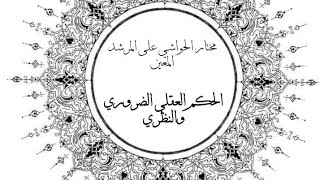 مختار الحواشي على المرشد
المعين
الحكم العقلي الضروري
والنظري